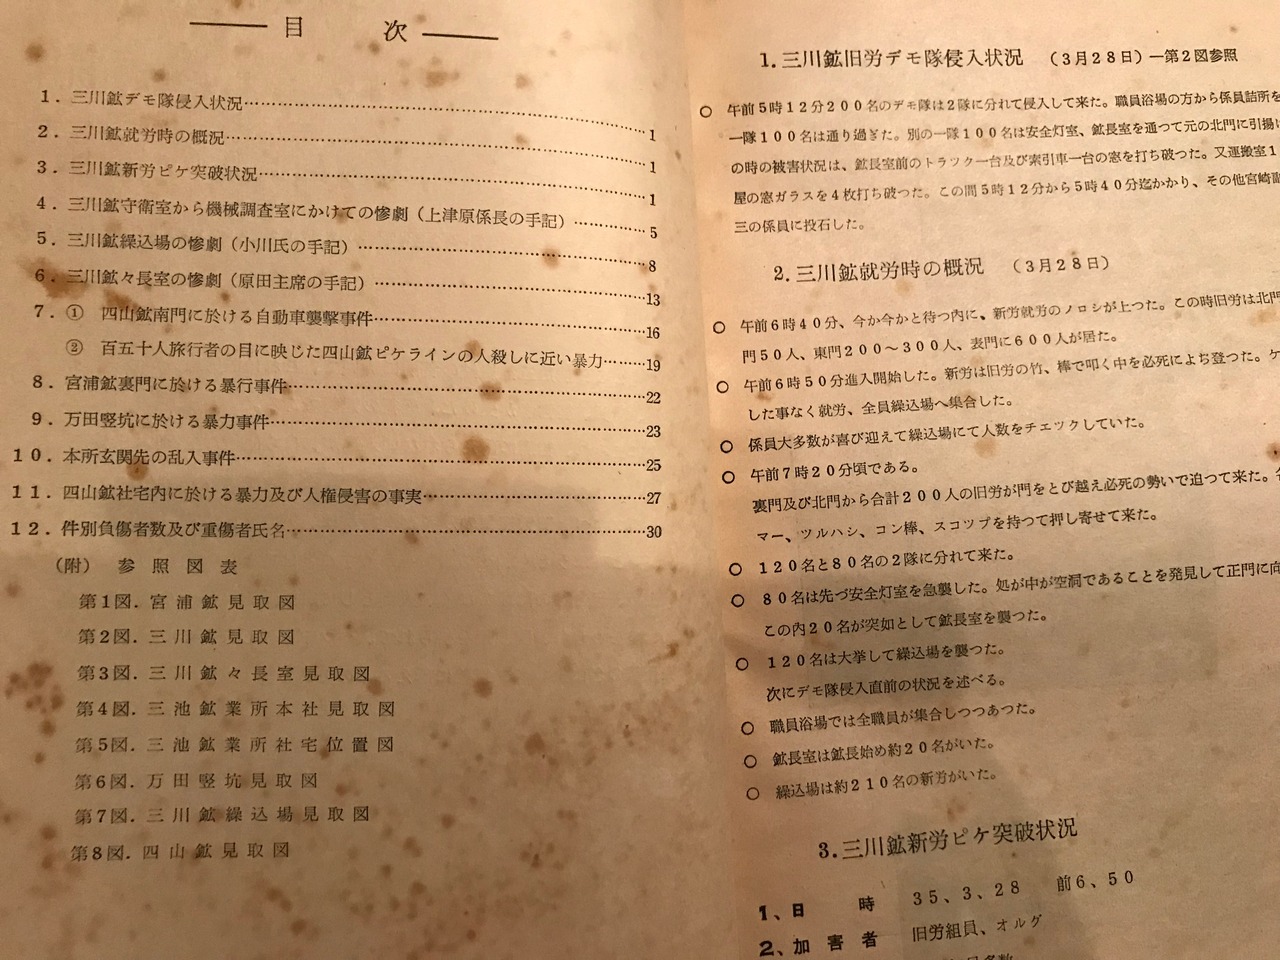 目 次
1. 三川鉱デモ隊侵入状況……1
2. 三川鉱就労時の概況……1
3. 三川鉱新労ピケ突破状況……1
4. 三川鉱守衛室から機械調査室にかけての惨劇(上津原係長の手記)……5
5. 三川鉱繰込場の惨劇(小川氏の手記)……8
6. 三川鉱々長室の惨劇(原田主席の手記)……13
7. ① 四山鉱南門に於ける自動車襲撃事件……16
② 百五十人旅行者の目に映じた四山鉱ピケラインの人殺しに近い暴力……19
8. 宮浦鉱裏門に於ける暴行事件……22
9. 万田竪坑に於ける暴力事件……23
10. 本所玄関先の乱入事件……25
11. 四山鉱社宅内に於ける暴力及び人権侵害の事実……27
12. 件別負傷者数及び重傷者氏名……30
(附) 参照図表
第1図. 宮浦鉱見取図
第2図. 三川鉱見取図
第3図. 三川鉱々長室見取図
第4図. 三池鉱業所本社見取図
第5図. 三池鉱業所社宅位置図
第6図. 万田竪坑見取図
第7図. 三川鉱繰込場見取図
第8図. 四山鉱見取図
1. 三川鉱旧労デモ隊侵入状況 (3月28日)―第2図参照
○ 午前5時12分200名のデモ隊は2隊に分れて侵入して来た。職員浴場の方から係員詰所を
一隊100名は通り過ぎた。別の一隊100名は安全灯室、鉱長室を通つて元の北門に引揚げ
の時の被害状況は、鉱長室前のトラツク一台及び索引車一台の窓を打ち破つた。又運搬室1
屋の窓ガラスを4枚打ち破つた。この間5時12分から5時40分迄かかり、その他宮崎副
三の係員に投石した。
2. 三川鉱就労時の概況 (3月28日)
○ 午前6時40分、今か今かと待つ内に、新労就労のノロシが上つた。この時旧労は北門
門50人、東門200〜300人、表門に600人が居た。
○ 午前6時50分進入開始した。新労は旧労の竹、棒で叩く中を必死によち登つた。ケ
した事なく就労、全員繰込場へ集合した。
○ 係員大多数が喜び迎えて繰込場にて人数をチエツクしていた。
○ 午前7時20分頃である。
裏門及び北門から合計200人の旧労が門をとび越え必死の勢いで迫つて来た。各
マー、ツルハシ、コン棒、スコツプを持つて押し寄せて来た。
○ 120名と80名の2隊に分れて来た。
○ 80名は先づ安全灯室を急襲した。処が中が空洞であることを発見して正門に向
この内20名が突如として鉱長室を襲つた。
○ 120名は大挙して繰込場を襲つた。
次にデモ隊侵入直前の状況を述べる。
○ 職員浴場では全職員が集合しつつあつた。
○ 鉱長室は鉱長始め約20名がいた。
○ 繰込場は約210名の新労がいた。
3. 三川鉱新労ピケ突破状況
1、日 時 35、3、28 前6、50
2、加害者 旧労組員、オルグ